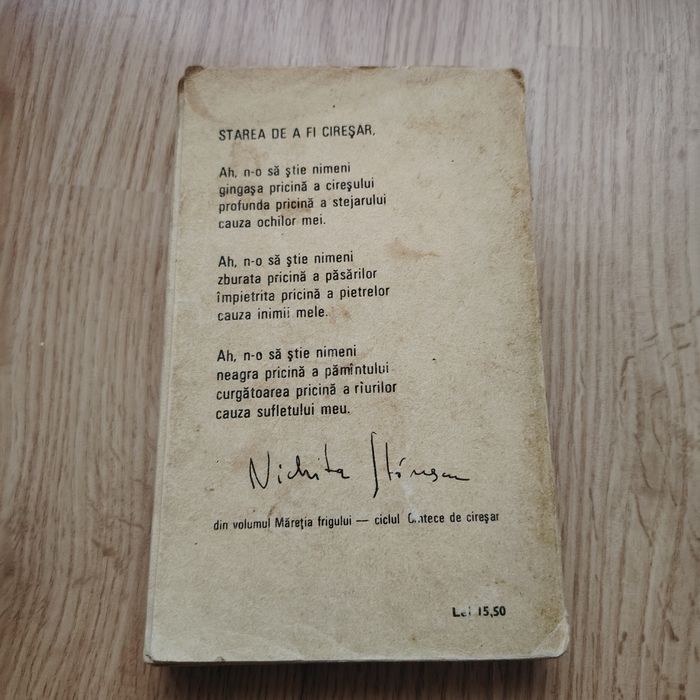 STAREA DE A FI CIREŞAR,
Ah, n-o să ştie nimeni
gingaşa pricină a cireşului
profunda pricină a stejarului
cauza ochilor mei.
Ah, n-o să ştie nimeni
zburata pricină a păsărilor
împietrita pricină a pietrelor
cauza inimii mele.
Ah, n-o să ştie nimeni
neagra pricină a pămîntului
curgătoarea pricină a rîurilor
cauza sufletului meu.
Nichita Stănescu
din volumul Măreţia frigului — ciclul Cîntece de cireşar
Lei 15,50